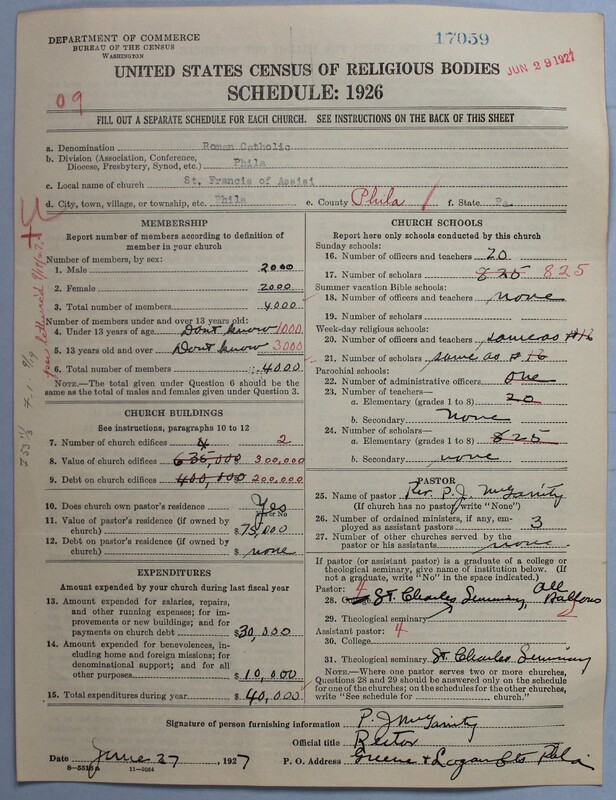 DEPARTMENT OF COMMERCE
BUREAU OF THE CENSUS
WASHINGTON
17059
UNITED STATES CENSUS OF RELIGIOUS BODIES
JUN 29 1927
SCHEDULE: 1926
09
FILL OUT A SEPARATE SCHEDULE FOR EACH CHURCH. SEE INSTRUCTIONS ON THE BACK OF THIS SHEET
a. Denomination Roman Catholic
b. Division (Association, Conference, Diocese, Presbytery, Synod, etc.) Phila
c. Local name of church St. Francis of Assisi
d. City, town, village, or township, etc. Phila e. County Phila f. State Pa.
MEMBERSHIP
Report number of members according to definition of
member in your church
Number of members, by sex:
1. Male 2000
2. Female 2000
3. Total number of members 4000
Number of members under and over 13 years old:
4. Under 13 years of age Don't know 1000
5. 13 years old and over Don't know 3000
6. Total number of members 4000
NOTE.—The total given under Question 6 should be
the same as total of males and females given under Question 3.
CHURCH BUILDINGS
See instructions, paragraphs 10 to 12
7. Number of church edifices 4 2
8. Value of church edifices 635,000 300,000
9. Debt on church edifices 400,000 200,000
10. Does church own pastor's residence Yes
Yes or No
11. Value of pastor's residence (if owned by
church) $75,000
12. Debt on pastor's residence (if owned by
church) $ none
EXPENDITURES
Amount expended by your church during last fiscal year
13. Amount expended for salaries, repairs,
and other running expenses; for im-
provements or new buildings; and for
payments on church debt $30,000
14. Amount expended for benevolences,
including home and foreign missions; for
denominational support; and for all
other purposes $10,000
15. Total expenditures during year $40,000
CHURCH SCHOOLS
Report here only schools conducted by this church
Sunday schools:
16. Number of officers and teachers 20
17. Number of scholars 825 825
Summer vacation Bible schools:
18. Number of officers and teachers none
19. Number of scholars
Week-day religious schools:
20. Number of officers and teachers same as #16
21. Number of scholars same as #16
Parochial schools:
22. Number of administrative officers one
23. Number of teachers—
a. Elementary (grades 1 to 8) 20
b. Secondary None
24. Number of scholars—
a. Elementary (grades 1 to 8) 825
b. Secondary none
PASTOR
25. Name of pastor Rev. P. J. McGarrity
(If church has no pastor, write "None")
26. Number of ordained ministers, if any, em-
ployed as assistant pastors 3
27. Number of other churches served by the
pastor or his assistants none
If pastor (or assistant pastor) is a graduate of a college or
theological seminary, give name of institution below. (If
not a graduate, write "No" in the space indicated.)
Pastor: 4
28. St. Charles Seminary, All
29. Theological seminary
Assistant pastor: 4
30. College
31. Theological seminary St. Charles Seminary
NOTE.—Where one pastor serves two or more churches,
Questions 28 and 29 should be answered only on the schedule
for one of the churches; on the schedules for the other churches,
write "See schedule for ________ church."
Signature of person furnishing information P. J. McGarrity
Official title Rector
Date June 27, 1927 P. O. Address Greene & Logan Sts Phila
8—5518a 11—9064